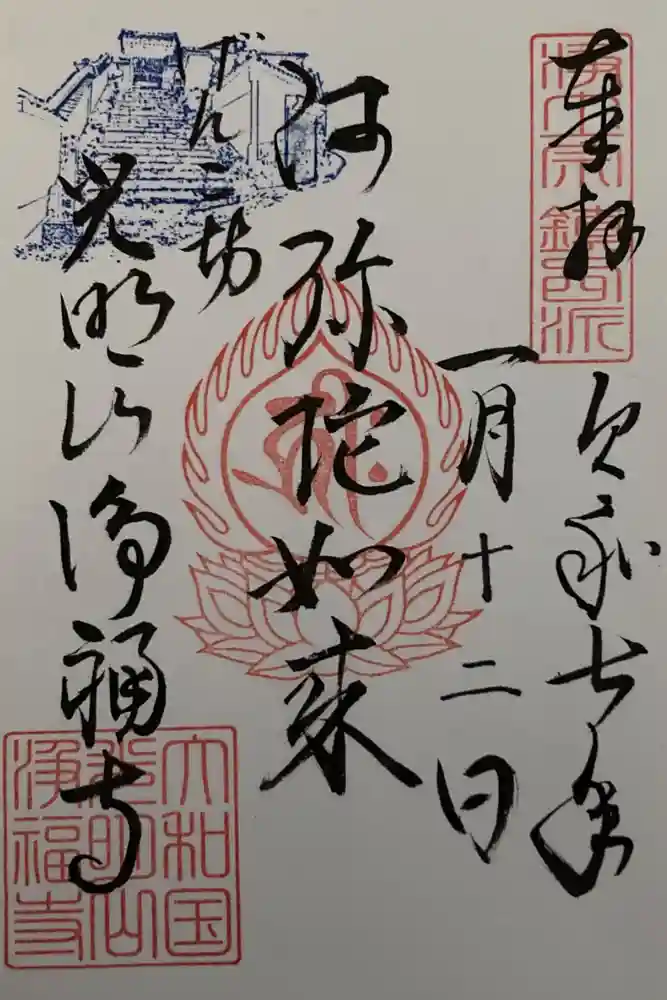 奉拝
令和七年
一月十二日
阿弥陀如来
ぜんこ坊
光明山浄福寺
浄土宗鎮西派
大和国
光明山
浄福寺